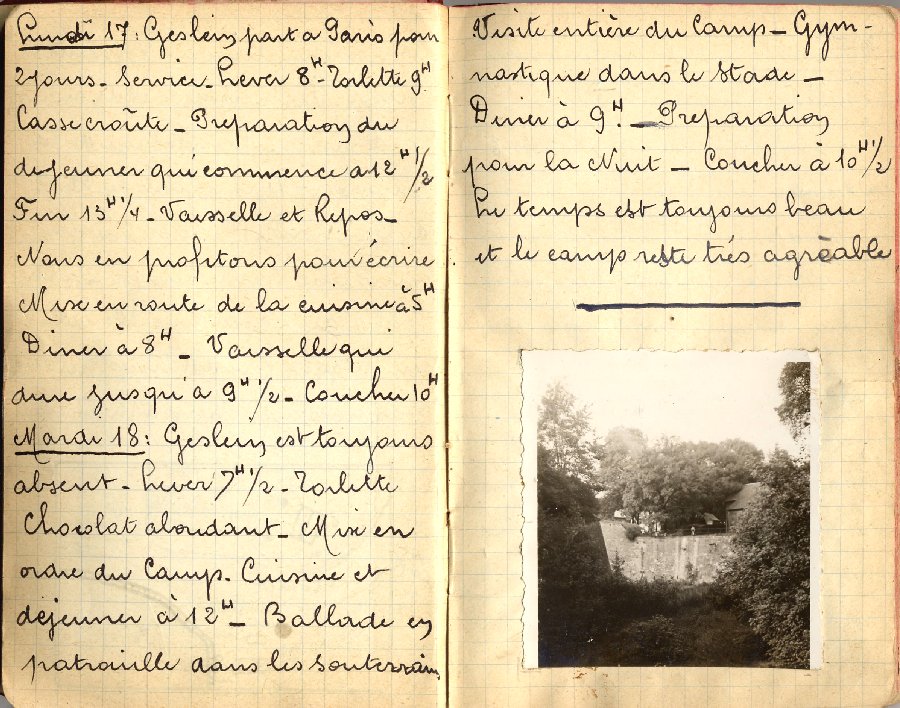 Lundi 17: Geslein part à Paris pour
2 jours - Service - Lever 8H - Toilette 9H
Casse croûte - Preparation du
dejeuner qui commence a 12H 1/2
Fin 13H 1/4 - Vaisselle et Repos -
Nous en profitons pour écrire
Mise en route de la cuisine à 5H
Diner à 8H - Vaisselle qui
dure jusqu'à 9H 1/2 - Coucher 10H
Mardi 18: Geslein est toujours
absent - Lever 7H 1/2 - Toilette
Chocolat abondant - Mise en
ordre du Camp - Cuisine et
déjeuner à 12H - Ballade en
patrouille dans les souterrains
Visite entière du Camp - Gym-
nastique dans le Stade -
Diner à 9H - Preparation
pour la Nuit - Coucher à 10H 1/2
Le temps est toujours beau
et le camp reste trés agréable